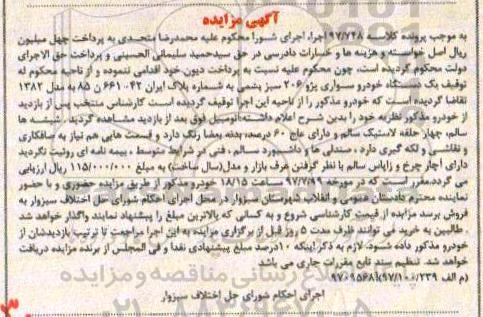 آگهی مزایده
به موجب پرونده کلاسه ۹۷/۷۴۸ اجرا، اجرای شورا محکوم علیه محمدرضا متحدی به پرداخت چهل میلیون
ریال اصل خواسته و هزینه ها و خسارات دادرسی در حق سیدحمید سلیمانی الحسینی و پرداخت حق الاجرای
دولت محکوم گردیده است، چون محکوم علیه نسبت به پرداخت دیون خود اقدامی ننموده و از ناحیه محکوم له
توقیف یک دستگاه خودرو سواری پژو ۲۰۶ سبز یشمی به شماره پلاک ایران ۴۲- ۶۶۱ ق ۸۵ به مدل ۱۳۸۲
تقاضا گردیده است که خودرو مذکور را از ناحیه این اجرا توقیف گردیده است کارشناس منتخب پس از بازدید
از خودرو مذکور نظریه خود را بدین شرح اعلام داشته اتومبیل فوق بعد از بازدید مشاهده گردید، شیشه ها
سالم، چهار حلقه لاستیک سالم و دارای عاج ۶۰ درصد، بدنه بعضا رنگ دارد و قسمت هایی هم نیاز به صافکاری
و نقاشی و لکه گیری دارد ، صندلی ها و داشبورد سالم ، فنی در شرایط متوسط ، بیمه نامه ای روئیت نگردید
دارای آچار چرخ و زاپاس سالم با نظر گرفتن عرف بازار و مدل(سال ساخت) به مبلغ ۱۱۵/۰۰۰/۰۰۰ ریال ارزیابی
می گردد.مقرر است که در مورخه ۹۷/۷/۹ ساعت ۱۸/۱۵ خودرو مذکور از طریق مزایده حضوری و با حضور
نماینده محترم دادستان عمومی و انقلاب شهرستان سبزوار در محل اجرای احکام شورای حل اختلاف سبزوار به
فروش برسد مزایده از قیمت کارشناسی شروع و به کسانی که بالاترین مبلغ را پیشنهاد نمایند واگذار خواهد شد
، طالبین به خرید می توانند ظرف مدت ۵ روز قبل از برگزاری مزایده به این اجرا مراجعت تا ترتیب بازدیدشان از
خودرو مذکور داده شود. لازم به ذکر اینکه ۱۰درصد مبلغ پیشنهادی نقدا و فی المجلس از برنده مزایده دریافت
خواهد شد. تنظیم سند تابع مقررات جاری می باشد
(م الف ۹۷/۱۰۰/۲۳۹)۹۷۰۹۵۶۸
اجرای احکام شورای حل اختلاف سبزوار